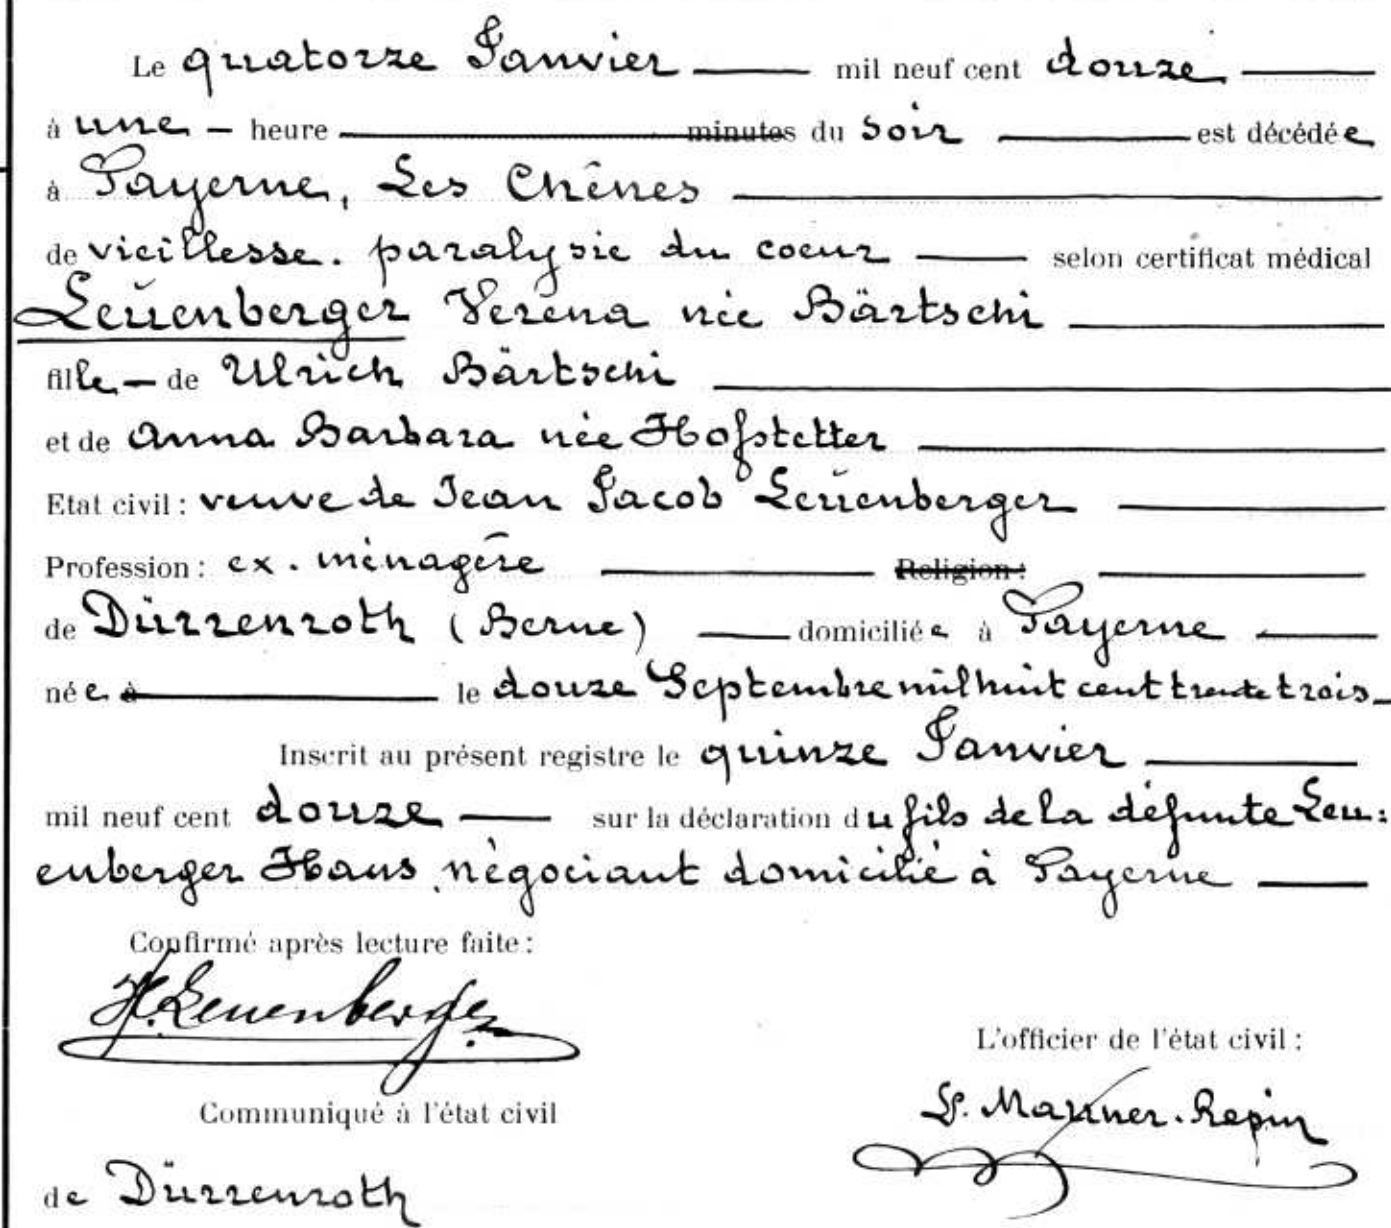 Le quatorze Janvier mil neuf cent douze
à une heure minutes du soir est décédée
à Payerne, Les Chênes
de vieillesse. paralysie du coeur selon certificat médical
Leuenberger Verena née Bärtschi
fille de Ulrich Bärtschi
et de Anna Barbara née Hofstetter
Etat civil : veuve de Jean Jacob Leuenberger
Profession : ex. ménagère Religion :
de Dürrenroth (Berne) domiciliée à Payerne
née à le douze Septembre mil huit cent trente trois
Inscrit au présent registre le quinze Janvier
mil neuf cent douze sur la déclaration du fils de la défunte Leu:
enberger Hans, négociant domicilié à Payerne
Confirmé après lecture faite :
H. Leuenberger
L'officier de l'état civil :
Communiqué à l'état civil
de Dürrenroth